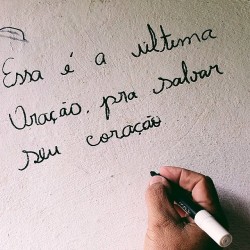 Essa é a última
Oração. pra salvar
seu coração